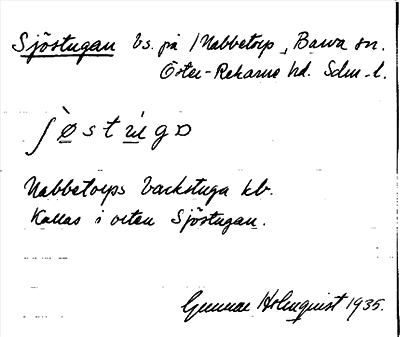 Sjöstugan bs. på Nabbetorp, Barva sn.
Öster-Rekarne hd. Sdm. l.
ʃø̀st ùgɒ
Nabbetorps backstuga kb.
Kallas i orten Sjöstugan.
Gunnar Holmquist 1935.